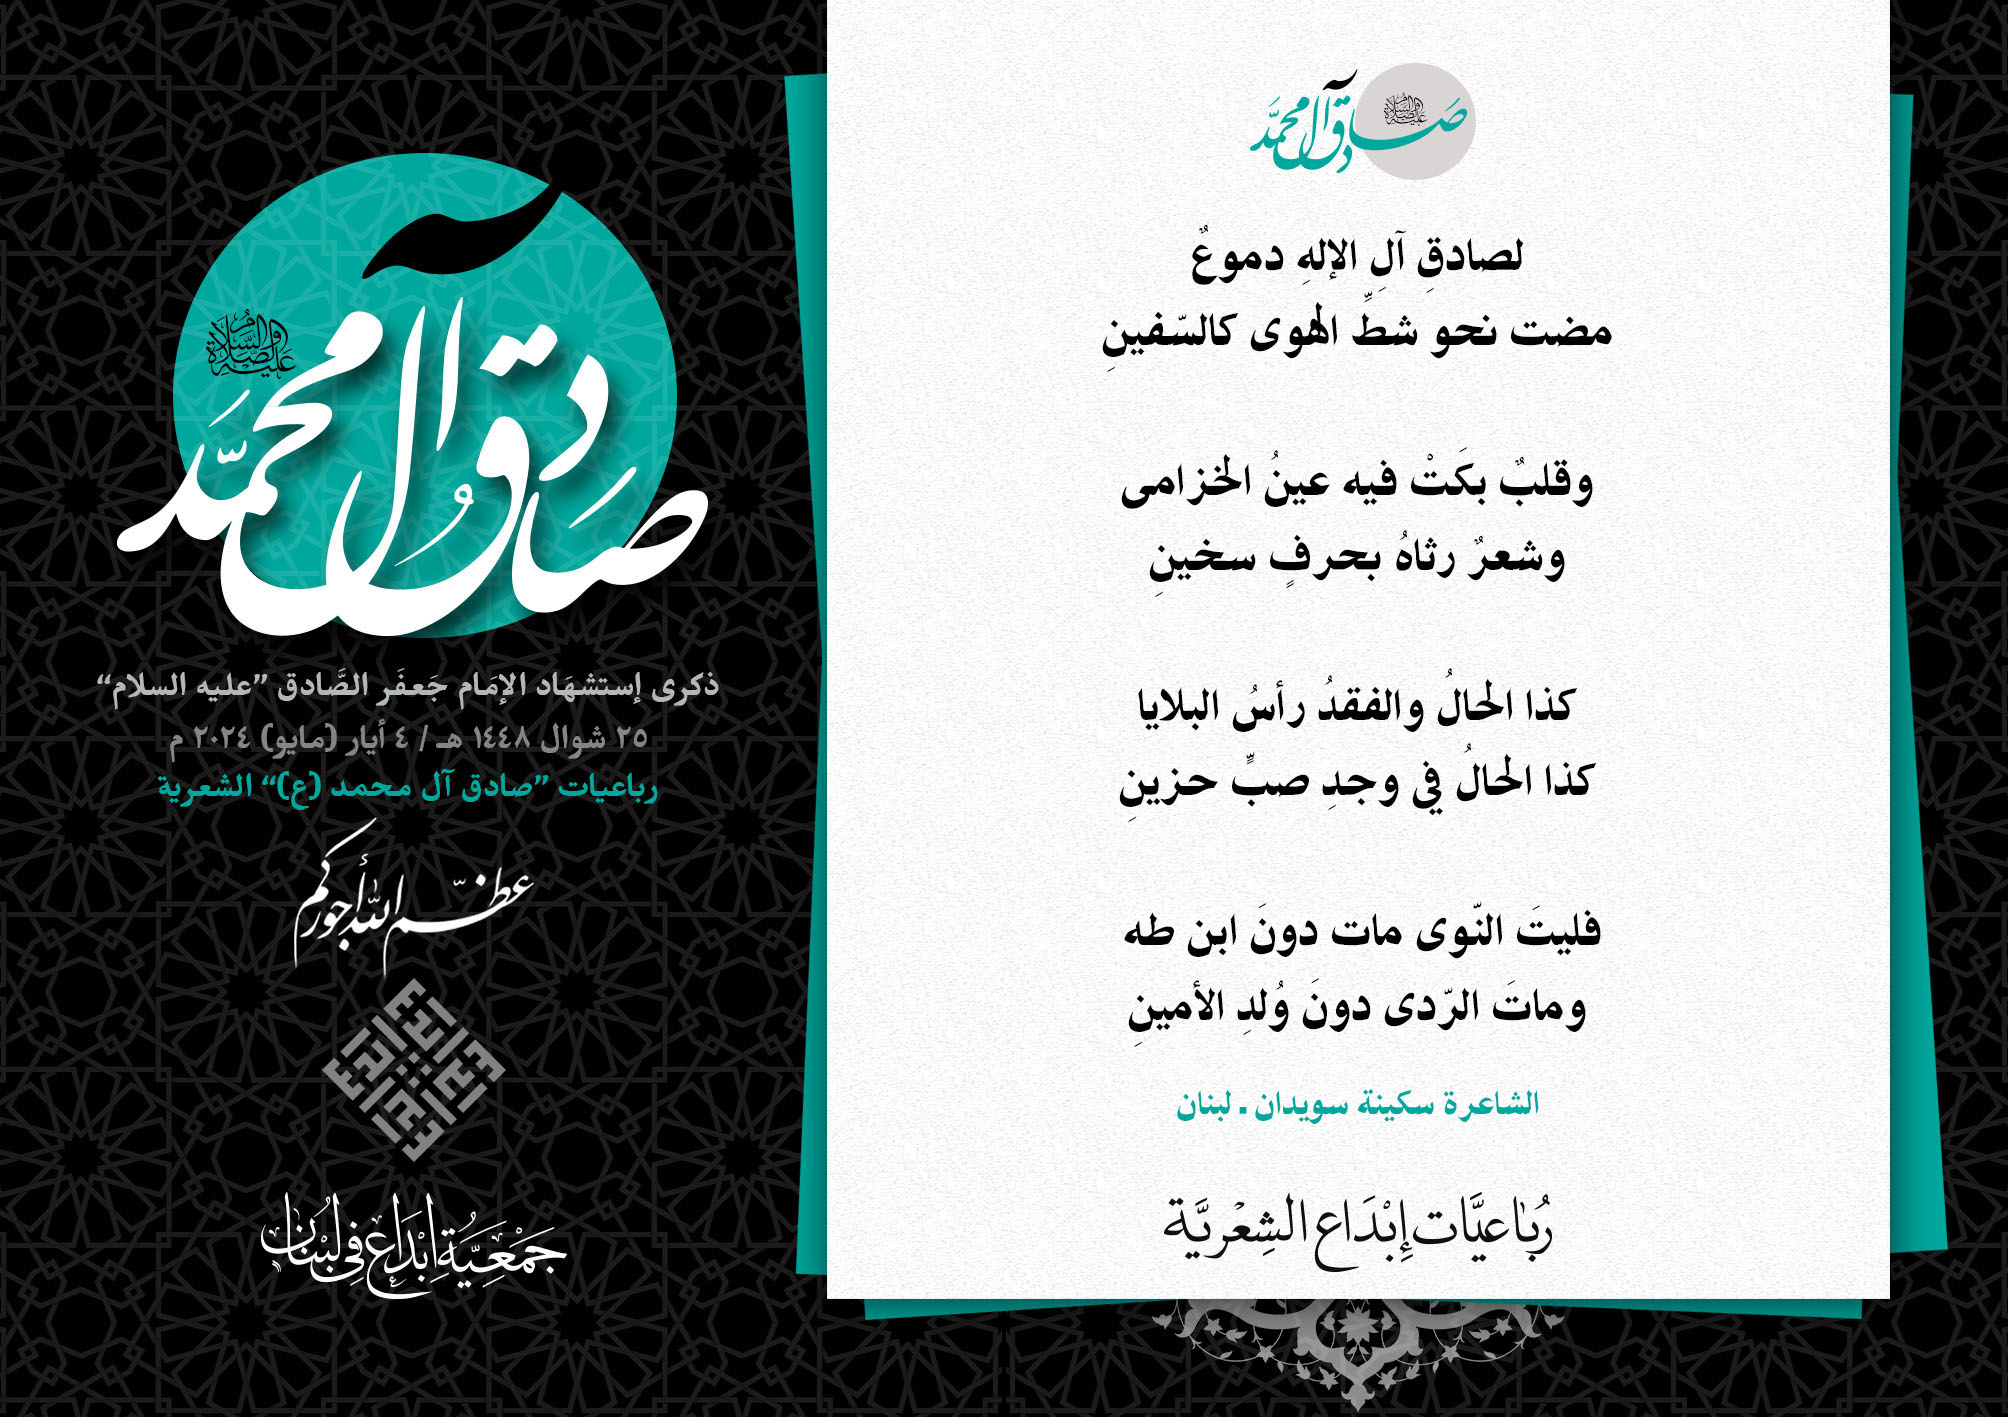 صادق آل محمد
عليه الصلاة والسلام
ذكرى إستشهَاد الإمَام جَعفَر الصَّادق ”عليه السلام“
٢٥ شوال ١٤٤٨ هـ / ٤ أيار (مايو) ٢٠٢٤ م
رباعيات ”صادق آل محمد (ع)“ الشعرية
عظّم الله أجوركم
جَمْعِيَّةُ إِبْدَاع فِي لُبْنَان
صادق آل محمد
عليه الصلاة والسلام
لصادقِ آلِ الإلهِ دموعٌ
مضت نحو شطِّ الهوى كالسّفينِ
وقلبٌ بكَتْ فيه عينُ الخزامى
وشعرٌ رثاهُ بحرفٍ سخينِ
كذا الحالُ والفقدُ رأسُ البلايا
كذا الحالُ في وجدِ صبٍّ حزينِ
فليتَ النّوى مات دونَ ابن طه
وماتَ الرّدى دونَ وُلدِ الأمينِ
الشاعرة سكينة سويدان ـ لبنان
رُبَاعيَّات إِبْدَاع الشِعْريَّة